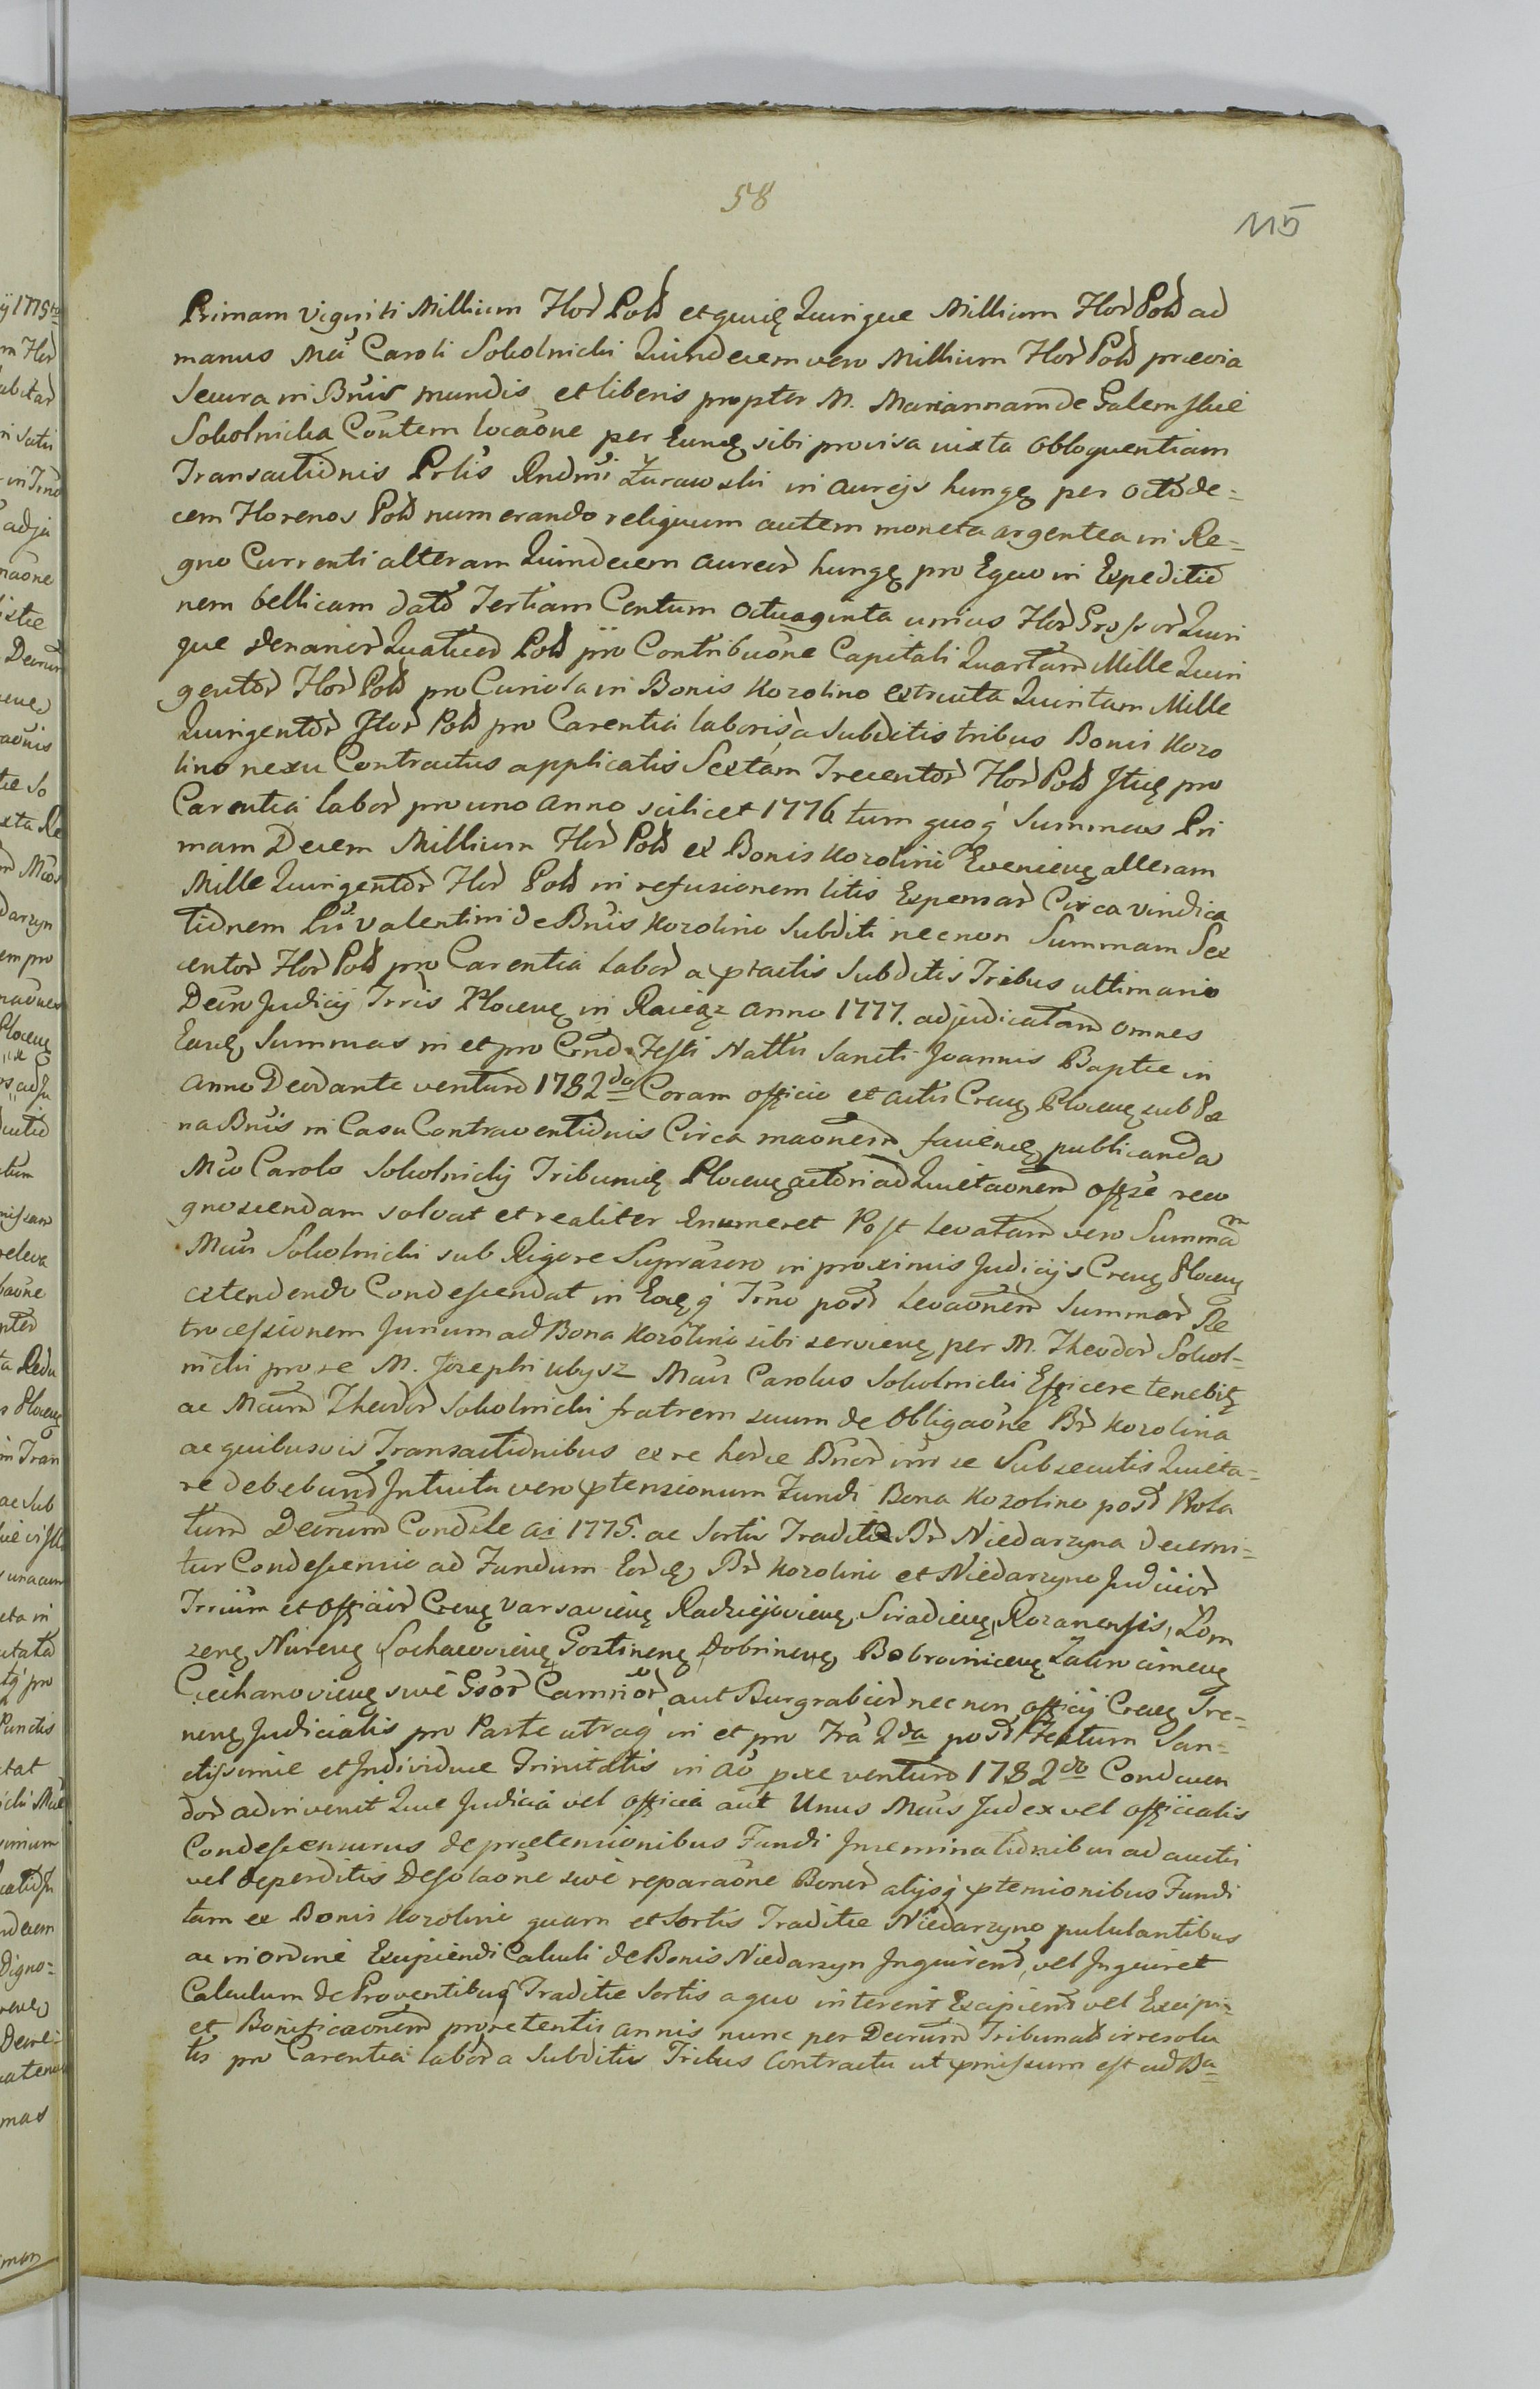 58
115
Primam viginti Millium Flor Pold et quidę Quinque Millium Flor Pold ad
manus Mci Caroli Sokolnicki Quindecem vero Millium Flor Pold prævia
secura in Bnis mundis et liberis propter M. Mariannam de Galemskie
Sokolnicka Contem locaone per Eund sibi provisa iuxta obloquentiam
Transactionis Prlis Rndmi Żurawski in aureys hungę per octode=
cem Florenos Pold numerando reliquum autem moneta argentea in Re=
gno Currenti alteram Quindecem aureor hungę pro Equo in Expeditio
nem bellicam dato Tertiam Centum octuaginta unius Flor Gross or Quin
que denarior Quatuor Pold pro Contribuone Capitali Quartam Mille Quin
gentor Flor Pold pro Curiola in Bonis Kozolino extructa Quintam Mille
Quingentor Flor Pold pro Carentia laboris a subditis tribus Bonis Kozo
lino nexu Contractus applicatis Sextam Trecentor Flor Pold Itidę pro
Carentia labor pro uno anno scilicet 1776 tum quoq summas Pri
mam Decem Millium Flor Pold ex Bonis Kozolino Evenienę alteram
Mille Quingentor Flor Pold in refusionem litis Expensar Circa vindica
tionem Valentini de Bnis Kozolino subditi necnon Summam Sex
centor Flor Pold pro Carentia labor a ptactis subditis Tribus ultimario
Decro Judicij Trris Plocenę in Raciąż anno 1777. adjudicatam omnes
Easdę Summas in et pro Crno Festi Nattis Sancti Joannis Baptæ in
anno Deo dante venturo 1782do Coram officio et actis Crenę Plocenę sub Pæ
na Bnis in Casu Contraventionis Circa maonem faciendę publicanda
Mco Carolo Sokolnicki Tribunidę Plocenę actori ad Quietaonem offse reco
gnoscendam solvat et realiter Enumeret Post levatam vero Summam
Mcus Sokolnicki sub Rigore Suprascro in proximis Judicijs Crenę Plocenę
extendendo Condescendat in Eoq Trno post levaonem summar Re
trocessionem Jurium ad Bona Kozolino sibi servienę per M. Theodor Sokol=
nicki pro se M. Josephi Ubysz Mcus Carolus Sokolnicki Efficere tenebitę
ac Mcum Theodor Sokolnicki fratrem suum de Obligaone Br Kozolina
ac quibusvis Transactionibus ex re horce Bnor inter se Subsecutis Quieta=
re debebund Intuitu vero ptensionum Fundi Bona Kozolino post Prola
tum Decrum Condle ai 1775. ac sortis Traditæ Br Niedarzyna decerni=
tur Condescensio ad Fundum Eordę Br Kozolino et Niedarzyno Judicior
Trrium et officior Crenę Varsavienę Radziejovienę, Siradienę, Rozanensis, Lom
zenę Nurenę Sochaczovienę Gostinenę Dobrinenę, Bobrownicenę Zakrocimenę
Ciechanovienę sive Gsor Camrior aut Burgrabior nec non officij Crenę Sre=
nenę Judicialis pro Parte utraq in et pro Fra 2da post Festum San=
ctissimæ et Individuæ Trinitatis in ao pxe venturo 1782do Conducen
dor adinvenit Quæ Judicia vel officia aut Unus Mcus Judex vel officialis
Condescensurus de prætensionibus Fundi Inseminationibus ad auctis
vel deperditis Desolaone sive reparaone Bonor alysq ptensionibus Fundi
tam ex Bonis Kozolino quam et Sortis Traditæ Niedarzyno pululantibus
ac in ordine Excipiendi Calculi de Bonis Niedarzyn Inquirend, vel Inquiret
Calculum de Proventibus Traditæ Sortis a quo intererit Excipiend vel Excipi=
et Bonificaonem proretentis annis nunc per Decrum Tribunal irresolu
tis pro Carentia labor a subditis Tribus Contractu ut pmissum est ad Ba=